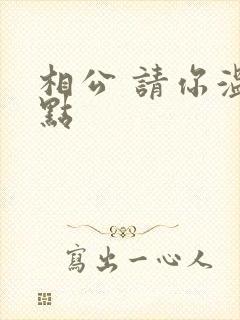 相公 請你溫
點
寫出一心人